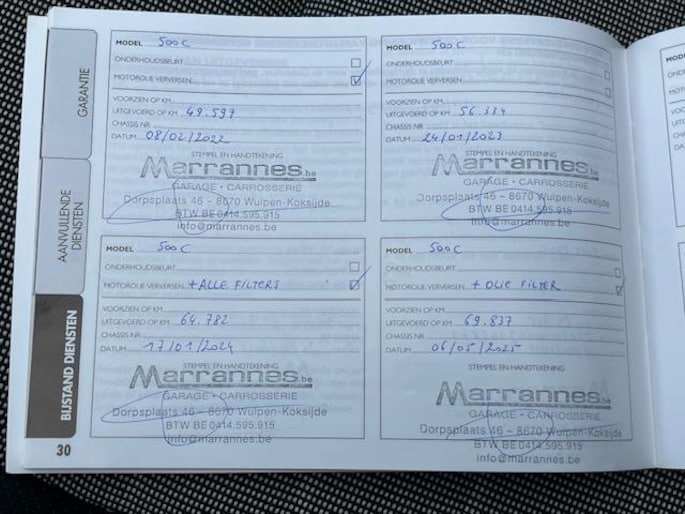 GARANTIE
AANVULLENDE
DIENSTEN
BIJSTAND DIENSTEN
MODEL 500C
ONDERHOUDSBEURT
MOTOROLIE VERVERSEN
VOORZIEN OP KM
UITGEVOERD OP KM 49.597
CHASSIS NR
DATUM 08/02/2022
STEMPEL EN HANDTEKENING
Marrannes.be
GARAGE - CARROSSERIE
Dorpsplaats 46 - 8670 Wulpen-Koksijde
BTW BE 0414.595.915
info@marrannes.be
MODEL 500C
ONDERHOUDSBEURT
MOTOROLIE VERVERSEN
VOORZIEN OP KM
UITGEVOERD OP KM 56.334
CHASSIS NR
DATUM 24/01/2023
STEMPEL EN HANDTEKENING
Marrannes.be
GARAGE - CARROSSERIE
Dorpsplaats 46 - 8670 Wulpen-Koksijde
BTW BE 0414.595.915
info@marrannes.be
MODEL 500C
ONDERHOUDSBEURT
MOTOROLIE VERVERSEN + ALLE FILTERS
VOORZIEN OP KM
UITGEVOERD OP KM 64.782
CHASSIS NR
DATUM 17/01/2024
STEMPEL EN HANDTEKENING
Marrannes.be
GARAGE - CARROSSERIE
Dorpsplaats 46 - 8670 Wulpen-Koksijde
BTW BE 0414.595.915
info@marrannes.be
MODEL 500C
ONDERHOUDSBEURT
MOTOROLIE VERVERSEN + OLIE FILTER
VOORZIEN OP KM
UITGEVOERD OP KM 69.837
CHASSIS NR
DATUM 06/05/2025
STEMPEL EN HANDTEKENING
Marrannes.be
GARAGE - CARROSSERIE
Dorpsplaats 46 - 8670 Wulpen-Koksijde
BTW BE 0414.595.915
info@marrannes.be
30